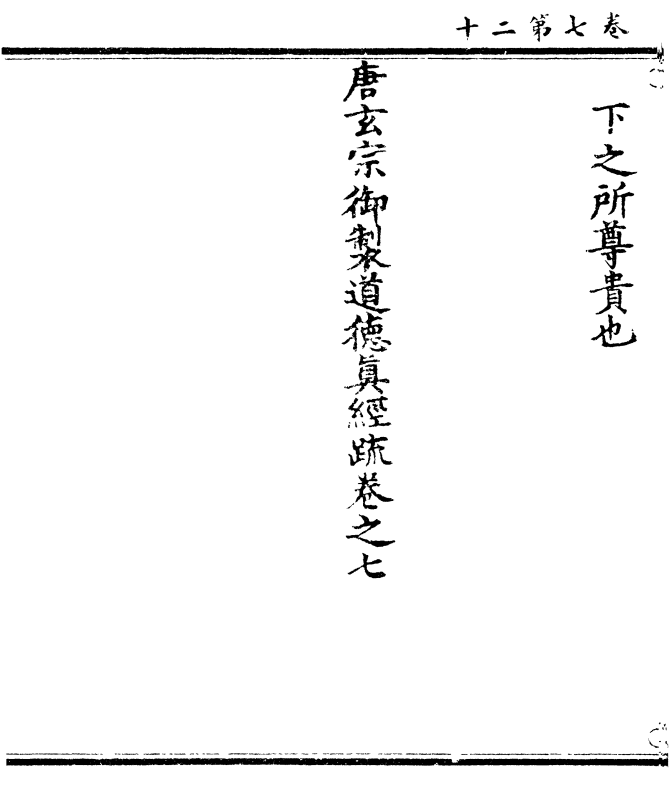 卷七第二十
下之所尊貴也
唐玄宗御製道德眞經疏卷之七